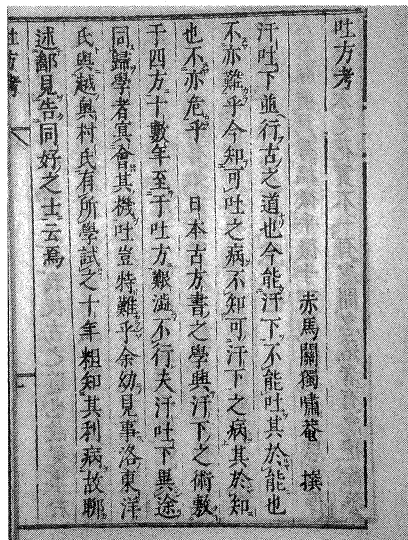 吐方考
赤馬關獨嘯菴 撰
汗吐下並行古之道也今能汗下不能吐其於能也
不亦難乎今知可吐之病不知可汗下之病其於知
也不亦危乎 日本古方書之學興汗下之術敷
于四方十數年至于吐方艱澁不行夫汗吐下異途
同歸學者冥會其機吐豈特難乎余幼見事洛東洋
氏與越奧村氏有所學試之十年粗知其利病故聊
述鄙見告同好之士云焉
吐方考